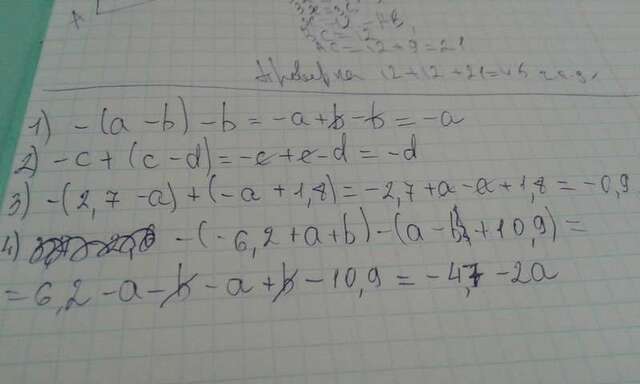 = 12 + 9 = 21
Проверка 12 + 12 + 21 = 45
1) -(a - b) - b = -a + b - b = -a
2) -c + (c - d) = -c + c - d = -d
3) -(2,7 - a) + (-a + 1,8) = -2,7 + a - a + 1,8 = -0,9
4) -(-6,2 + a + b) - (a - b + 10,9) =
= 6,2 - a - b - a + b - 10,9 = -4,7 - 2a